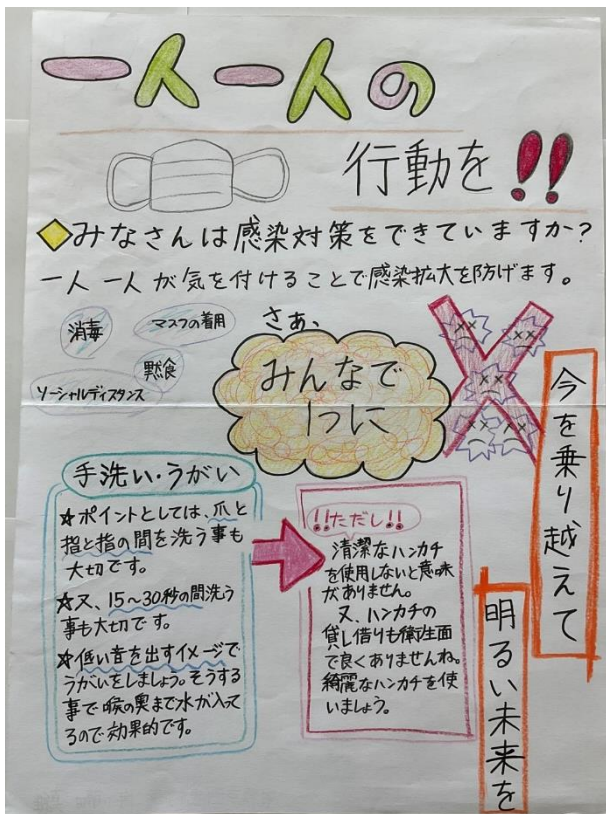 一人一人の
行動を!!
◆みなさんは感染対策をできていますか?
一人一人が気を付けることで感染拡大を防げます。
消毒
マスクの着用
黙食
ソーシャルディスタンス
さぁ、
みんなで
1つに
手洗い・うがい
☆ポイントとしては、爪と
指と指の間を洗う事も
大切です。
☆又、15〜30秒の間洗う
事も大切です。
☆低い音を出すイメージで
うがいをしましょう。そうする
事で喉の奥まで水が入って
るので効果的です。
!!ただし!!
清潔なハンカチ
を使用しないと意味
がありません。
又、ハンカチの
貸し借りも衛生面
で良くありませんね。
綺麗なハンカチを使
いましょう。
今を乗り越えて
明るい未来を